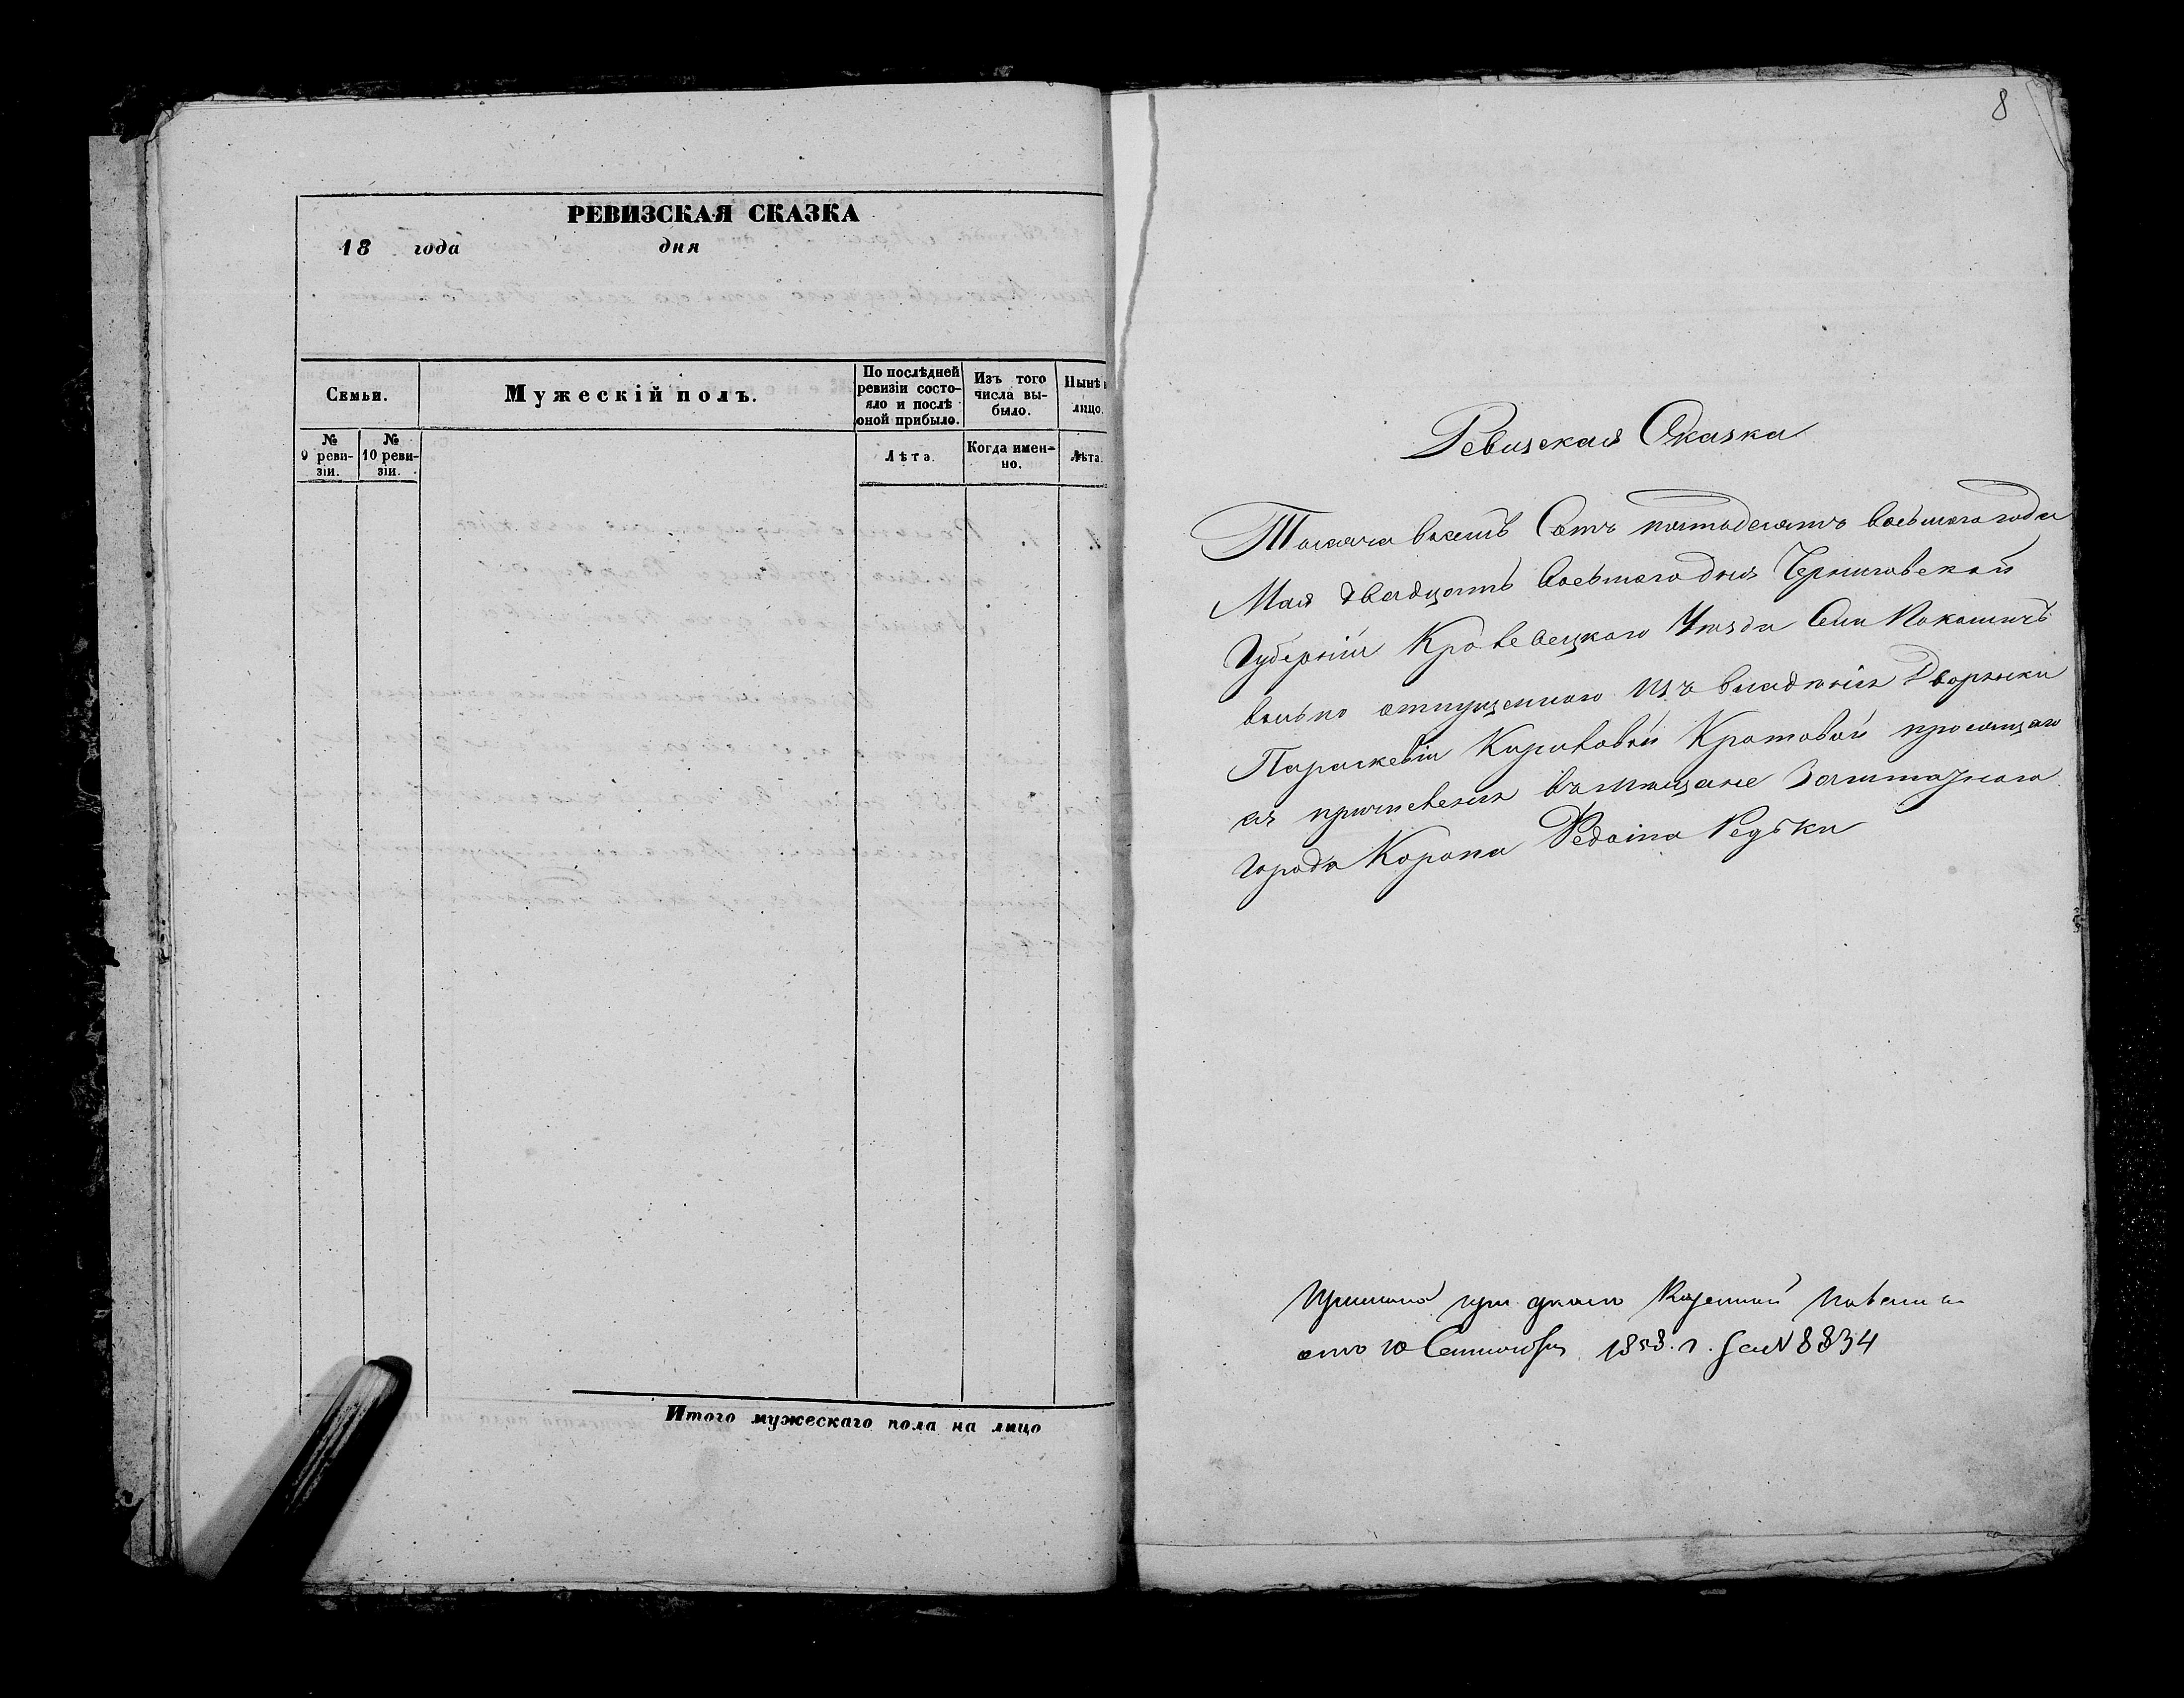 РЕВИЗСКАЯ СКАЗКА
18 года дня
Семьи.
Мужескій полъ.
По послѣдней ревизіи состо-
яло и послѣ
оной прибыло.
Изъ того
числа вы-
было.
Нынѣ
лицо.
№
9 реви-
зіи.
№
10 реви-
зіи.
Лѣта.
Когда имен-
но.
Лѣта.
Итого мужескаго пола на лицо
8
Ревизская Сказка
Тысяча восемь Сотъ пятьдесятъ восьмаго года
Мая двадцать восьмаго дня Черниговской
Губерніи Кролевецкаго Уѣзда Села Покошичь
вольно отпущеннаго изъ владѣнія Дворянки
Параскевіи Кириловой Кротовой просящаго
къ причисленія въ мѣщане Заштатнаго
города Коропа Редьки
при Казенной
отъ 10 Сентября 1858. г. за N 8834